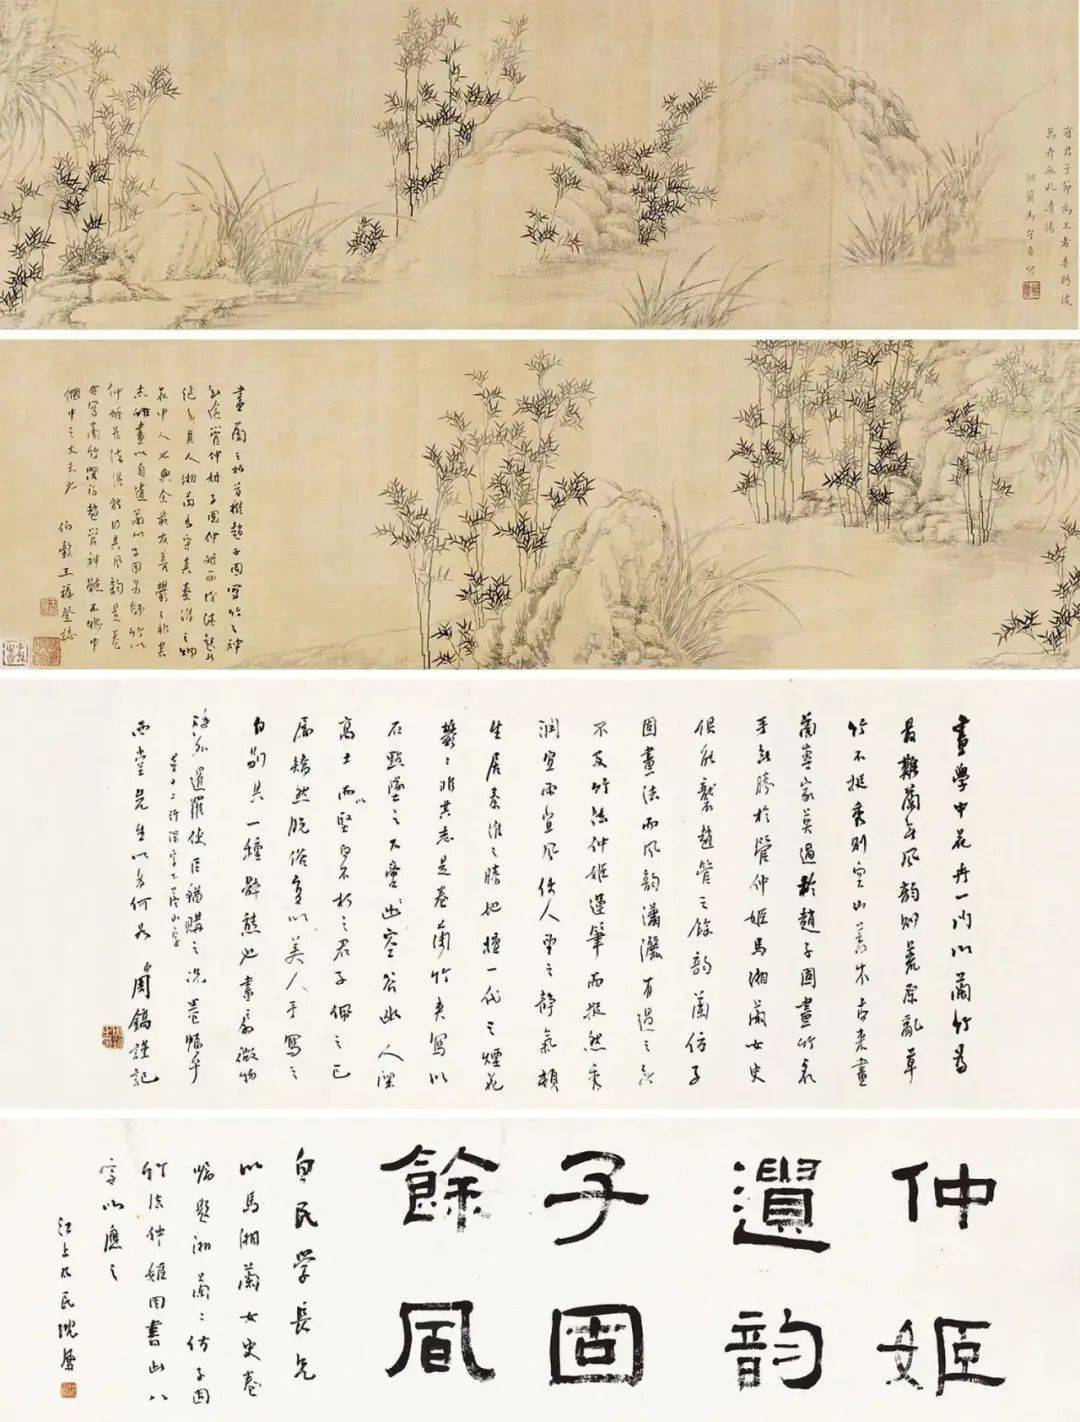 有君子節為王者香眄彼
萬卉無此清揚
湘蘭馬守真寫
畫蘭之祖首推趙子固寫竹之神
管仲姬子固仲姬而後法
絕矣其人湘蘭馬守真秦淮之烟
花中人也與余最友善鬱鬱非其
志惟畫以自遣蘭以子固為師竹以
仲姬為法俱能得其風韻是卷
合寫蘭竹深得趙管神髓不愧巾
幗中之丈夫也
伯穀王穉登誌
畫學中花卉一門以蘭竹為
最難蘭乏風韻則荒原亂草
竹不挺秀則空山蒿木古來畫
蘭專家莫過於趙子固畫竹名
手無勝於管仲姬馬湘蘭女史
俱能襲趙管之餘韻蘭仿子
固畫法而風韻瀟灑有過之無
不及竹法仲姬運筆而挺然秀
潤宜雨宜風使人望之靜氣頓
生居秦淮之勝地擅一代之煙花
鬱鬱非其志是卷蘭竹夾寫以
石點墜之不啻幽空谷幽人深
高士而以堅貞不朽之君子佩之已
屬矯然脫俗復以美人手寫之
自別具一種靜態也畫扇微物
暹羅使臣猶購之況卷幅乎
第十二行深字下落山字
西堂先生以為何如 周鎬謹記
仲姬
遺韻
子固
餘風
白民學長兄
以馬湘蘭女史卷
囑題湘蘭蘭仿子固
竹法仲姬因書此八
字以應之
江上老民